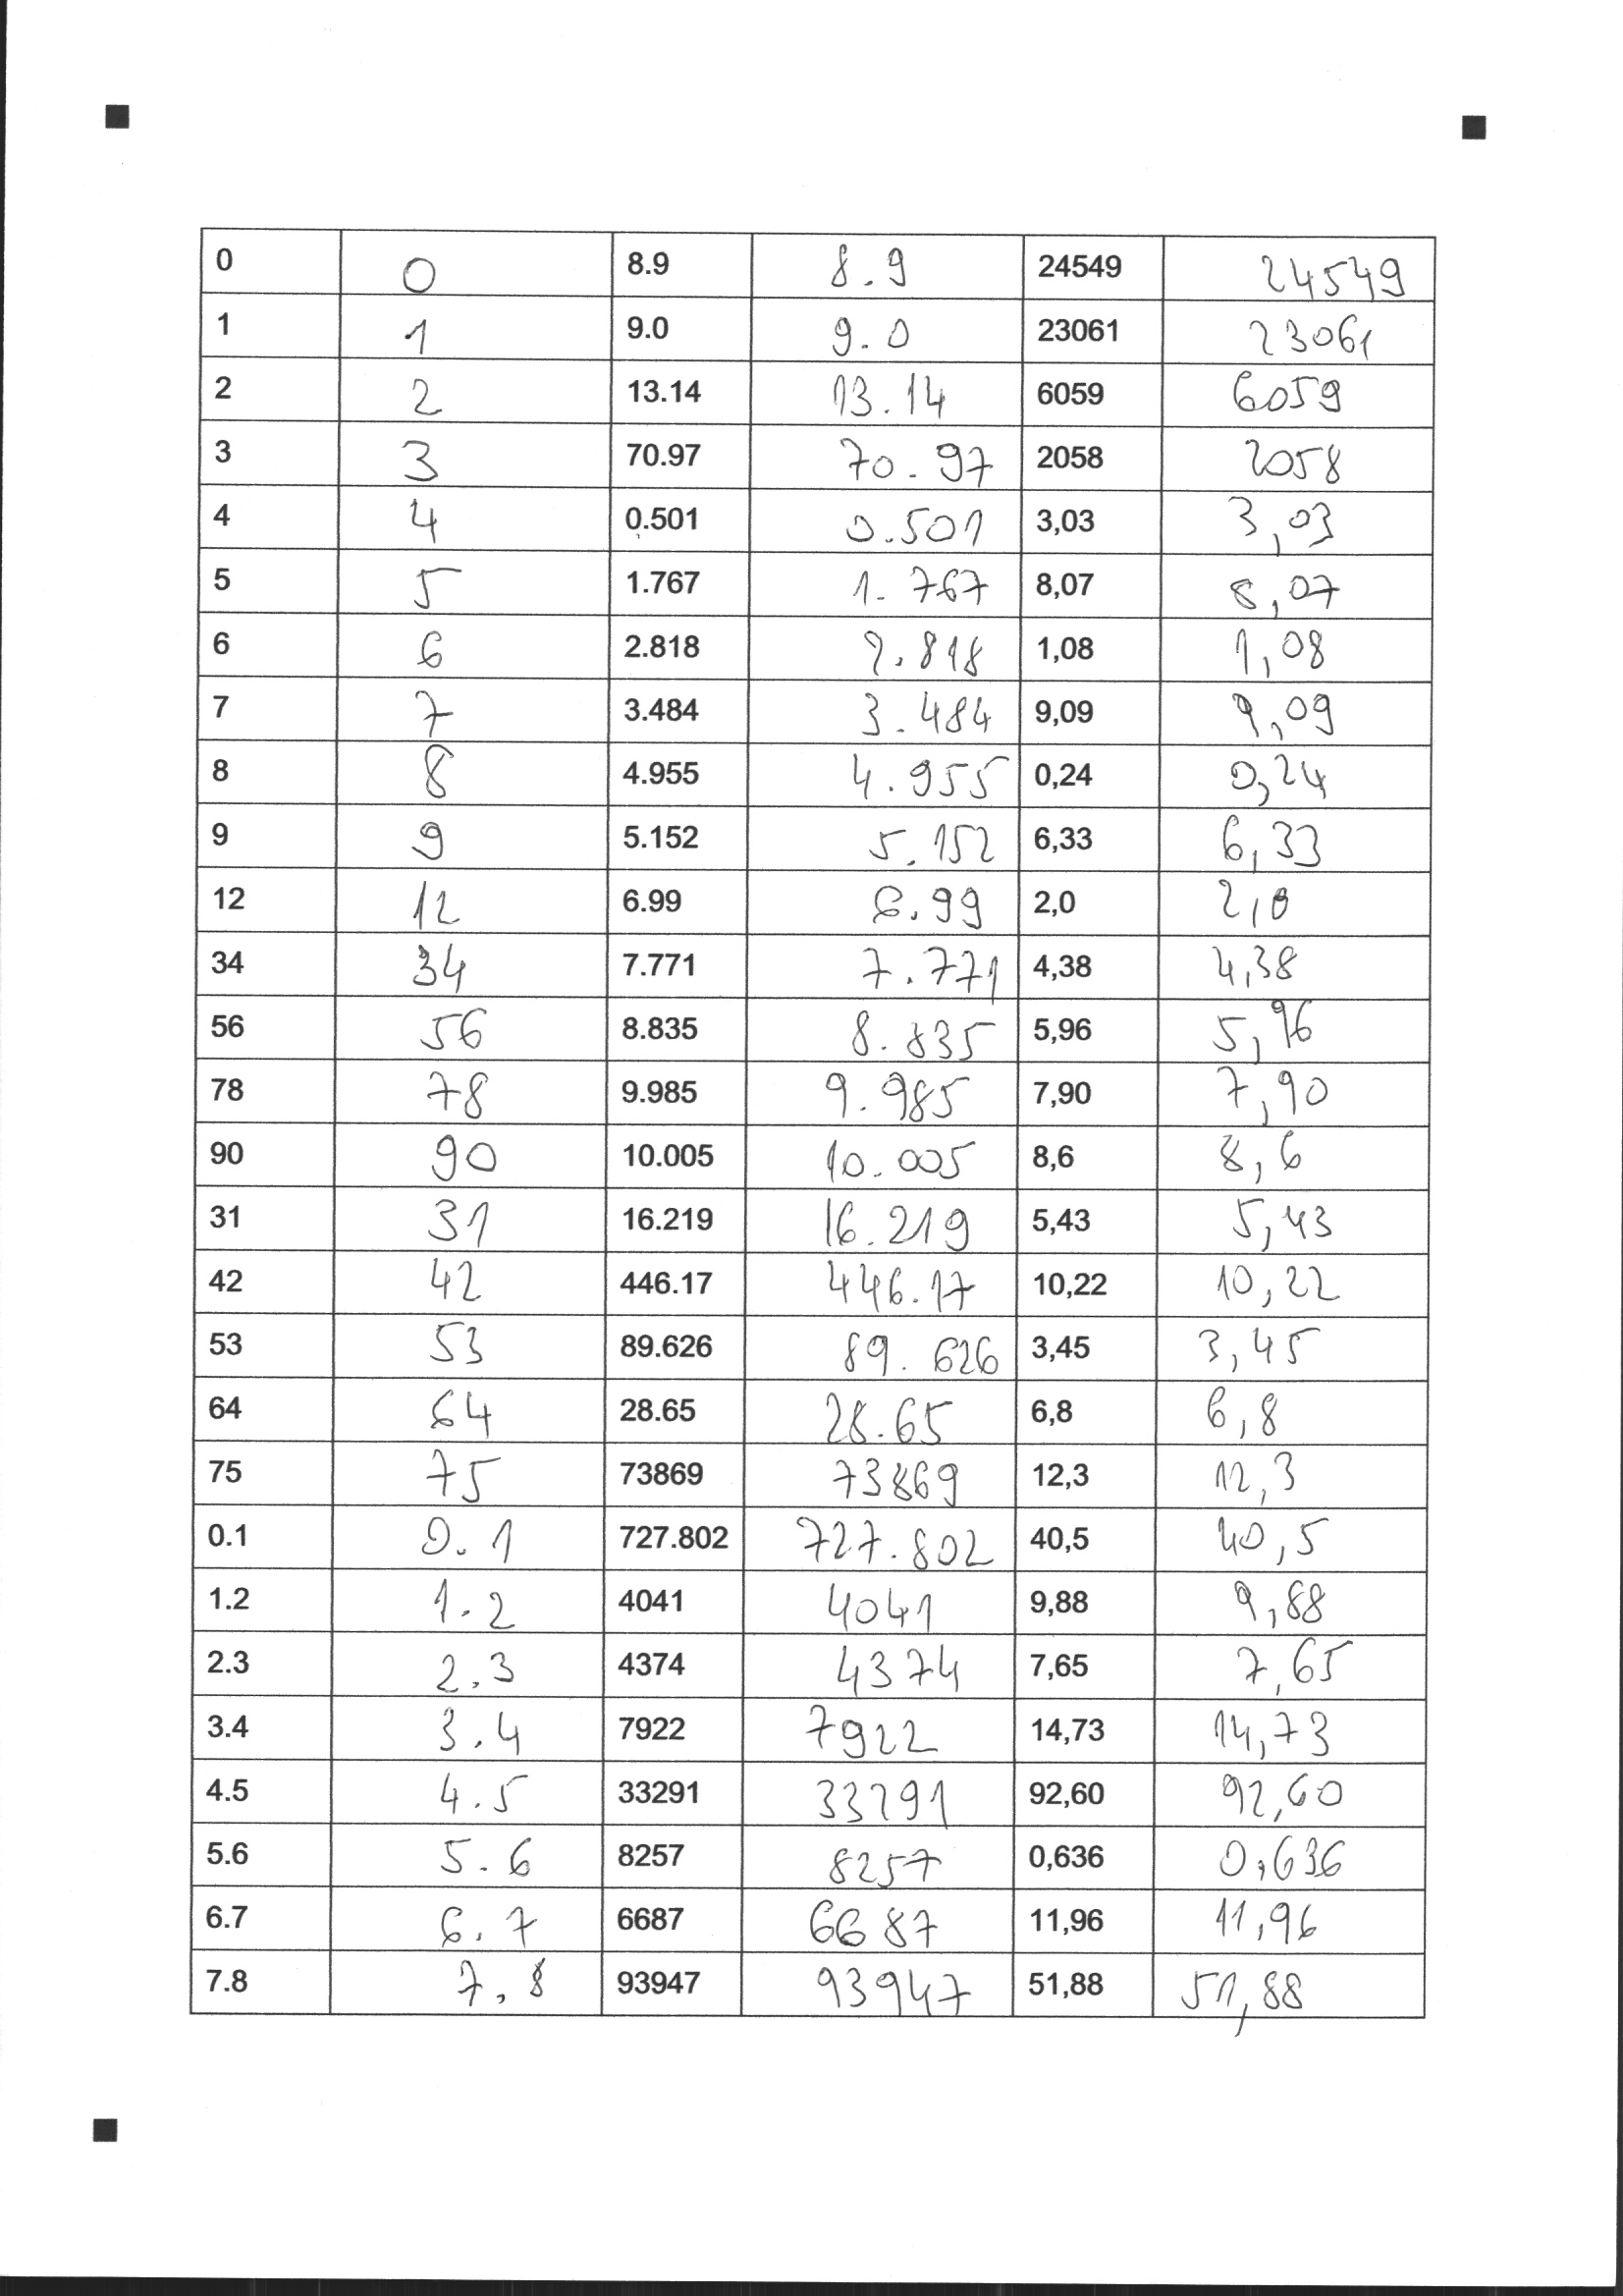 0 0 8.9 8.9 24549 24549
1 1 9.0 9.0 23061 23061
2 2 13.14 13.14 6059 6059
3 3 70.97 70.97 2058 2058
4 4 0.501 0.501 3,03 3,03
5 5 1.767 1.767 8,07 8,07
6 6 2.818 2.818 1,08 1,08
7 7 3.484 3.484 9,09 9,09
8 8 4.955 4.955 0,24 0,24
9 9 5.152 5.152 6,33 6,33
12 12 6.99 6.99 2,0 2,0
34 34 7.771 7.771 4,38 4,38
56 56 8.835 8.835 5,96 5,96
78 78 9.985 9.985 7,90 7,90
90 90 10.005 10.005 8,6 8,6
31 31 16.219 16.219 5,43 5,43
42 42 446.17 446.17 10,22 10,22
53 53 89.626 89.626 3,45 3,45
64 64 28.65 28.65 6,8 6,8
75 75 73869 73869 12,3 12,3
0.1 0.1 727.802 727.802 40,5 40,5
1.2 1.2 4041 4041 9,88 9,88
2.3 2.3 4374 4374 7,65 7,65
3.4 3.4 7922 7922 14,73 14,73
4.5 4.5 33291 33291 92,60 92,60
5.6 5.6 8257 8257 0,636 0,636
6.7 6.7 6687 6687 11,96 11,96
7.8 7.8 93947 93947 51,88 51,88